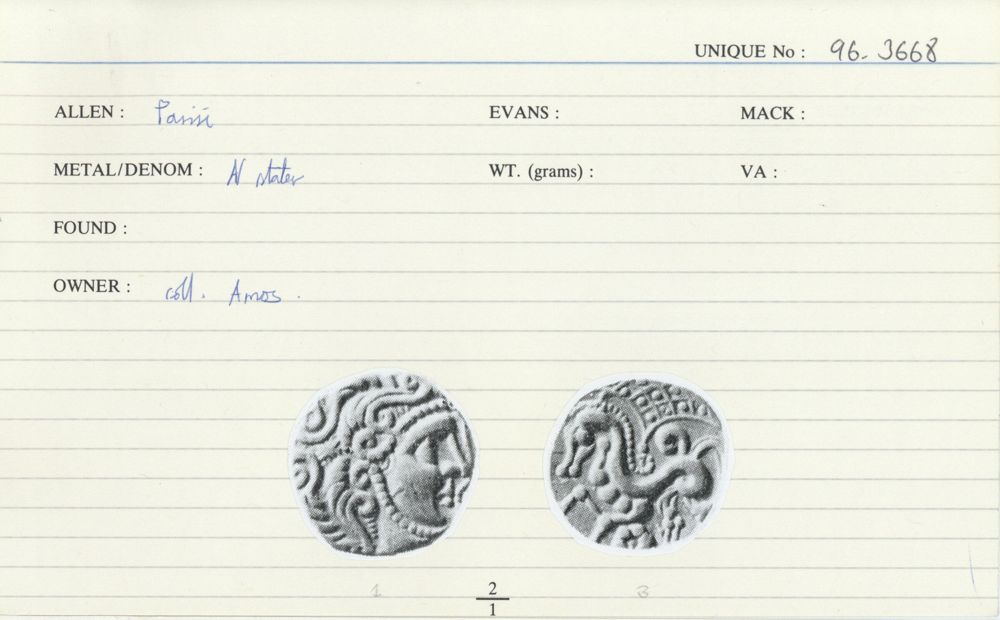 UNIQUE No : 96. 3668
ALLEN : Parisi EVANS : MACK :
METAL/DENOM : AV stater WT. (grams) : VA :
FOUND :
OWNER : coll. Amos .
1 2 3
1